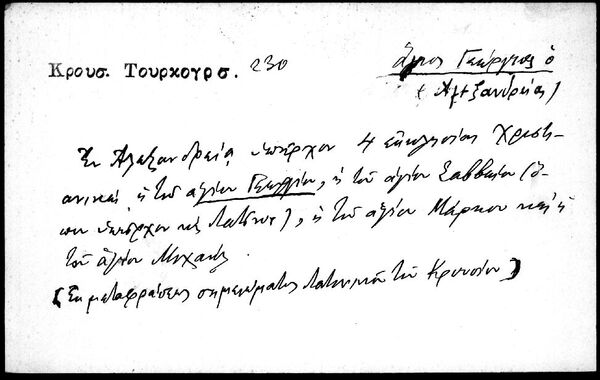 Κρουσ. Τουρκογρσ. 230
Ἅγιος Γεώργιος ὁ
(Ἀλεξανδρείας)
Ἐν Ἀλεξανδρείᾳ ὑπῆρχον 4 ἐκκλησίαι Χριστι-
ανικαί, ἡ τοῦ ἁγίου Γεωργίου, ἡ τοῦ ἁγίου Σάββα (ὅ-
που ὑπῆρχον καὶ Λατῖνοι), ἡ τοῦ ἁγίου Μάρκου καὶ ἡ
τοῦ ἁγίου Μιχαήλ.
[Ἐκ μεταφράσεως σημειώματος λατινικοῦ τοῦ Κρουσίου]